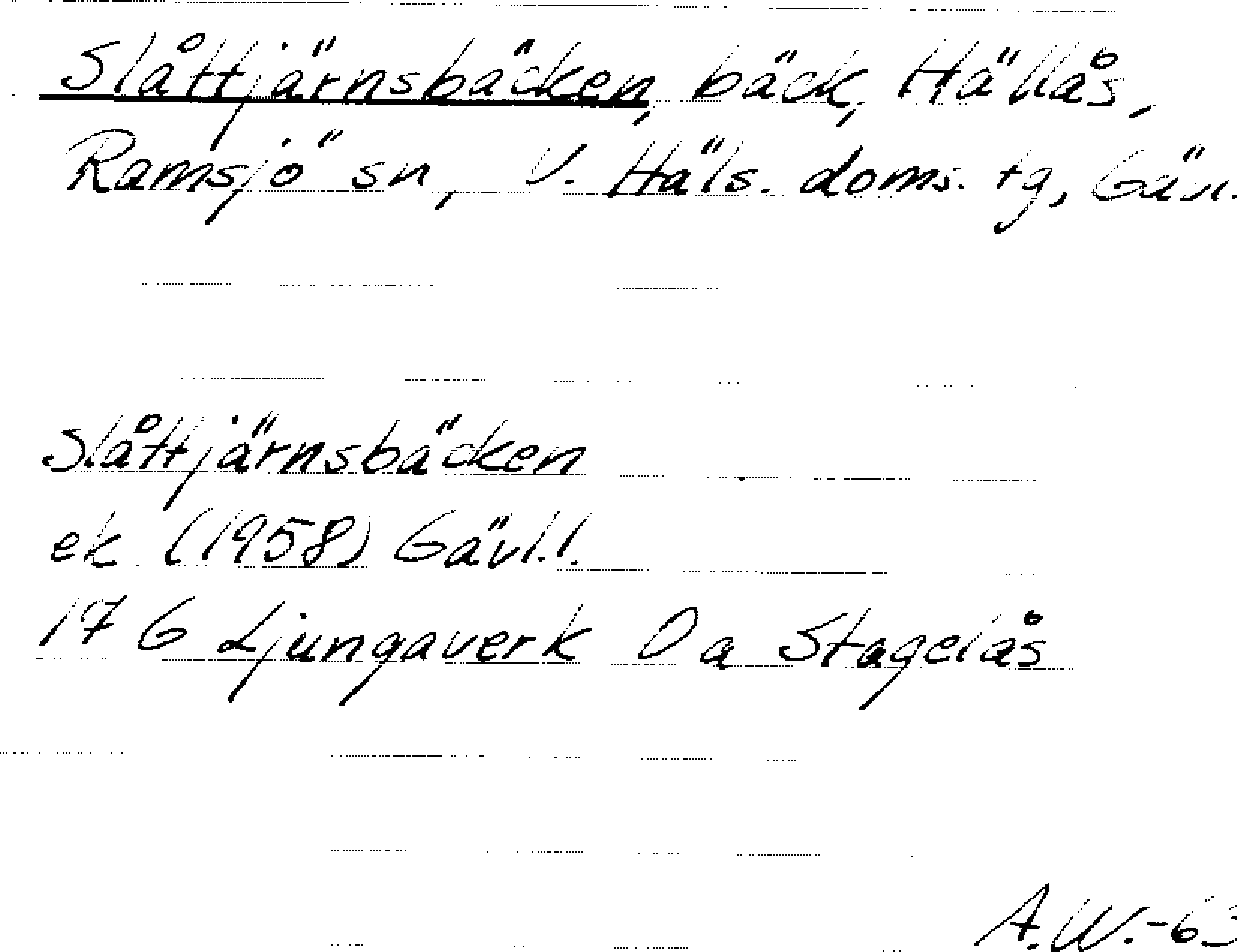 Slåttjärnsbäcken, bäck, Hällås,
Ramsjö sn, V. Häls. doms. tg, Gävl.
Slåttjärnsbäcken
ek (1958) Gävl.l.
17 G Ljungaverk 0 a Stagelås
A.W.-63